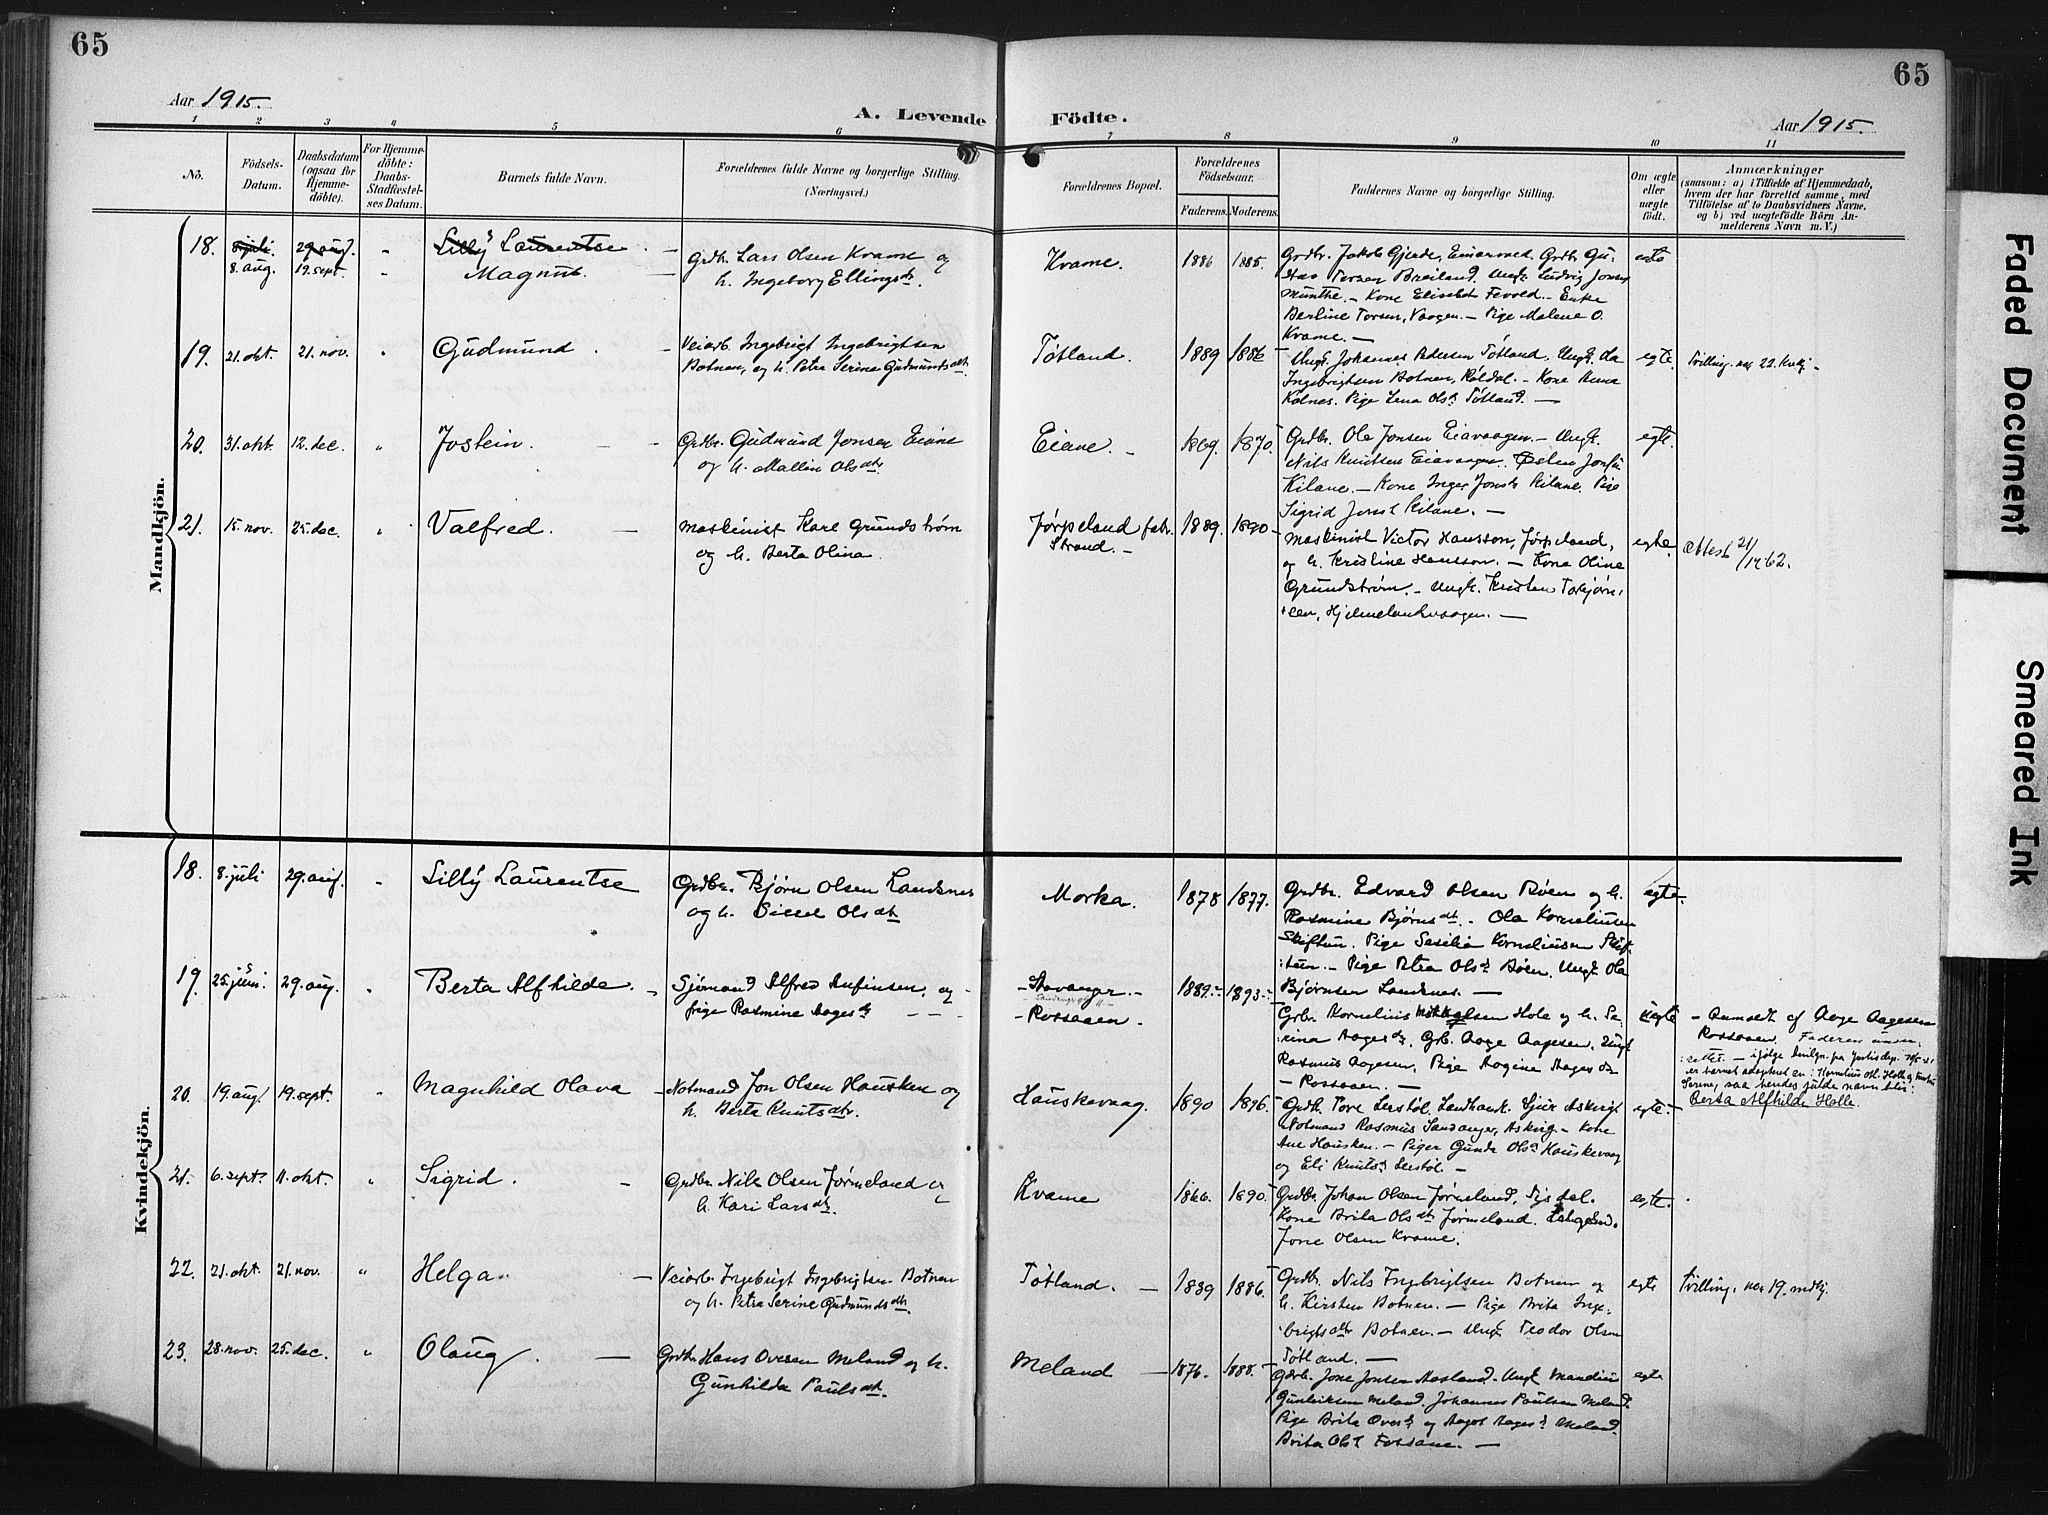 65
65
Aar 1915.
A. Levende Födte.
Aar 1915.
1 2 3 4 5 6 7 8 9 10 11
No.
Födsels-
Datum.
Daabsdatum
(ogsaa for
Hjemme-
döbte).
For Hjemme-
döbte:
Daabs-
Stadfæstel-
ses Datum.
Barnets fulde Navn.
Forældrenes fulde Navne og borgerlige Stilling.
(Næringsvei.)
Forældrenes Bopæl.
Forældrenes
Födselsaar.
Faderens. Moderens.
Faddernes Navne og borgerlige Stilling.
Om ægte
eller
uægte
födt.
Anmærkninger
(saasom: a) i Tilfælde af Hjemmedaab,
hvem der har forrettet samme, med
Tilföielse af to Daabsvidners Navne.
og b) ved uægtefödte Börn An-
melderens Navn m.V.)
Mandkjön.
18. 8 juli 29. aug. " Lilly Laurentse
8. aug. 19. sept. " Magnus.
Grdbr. Lars Olsen Kvame og
h. Ingeborg Ellingsdtr.
Kvame. 1886 1885.
Grdbr. Jakob Gjerde, Grdb. Gu-
Breiland. Ungk. Ludvig Jonsen
Munthe. – Kone Elisabet Fevold. – Enke
Berline Torsen, Vaagen. – Pige Malene O.
Kvame. –
egte
19. 21. okt. 21. nov. " Gudmund
Veiarb. Ingebrigt Ingebrigtsen
Botnen, og h. Petra Serine Gudmundsdtr.
Tøtland. 1889 1886
Ungk. Johannes Pedersen Tøtland. Ungk.
Ingebrigtsen Botnen, Røldal. – Kone
Kolnes. Pige Lena Olsd. Tøtland. –
egte. Tvilling. no. 22. kvkj –
20. 31. okt. 12. dec. " Jostein.
Grdbr. Gudmund Jonsen Eiane
og h. Mallin Olsdtr.
Eiane. – 1869. 1870.
Grdbr. Ola Jonsen Eiavaagen. – Ungk.
Nils Knutsen Eiavaagen. Østen
Kilane. – Kone Inger Jonsd. Kilane. Pige
Sigrid Jonsd. Kilane. –
egte.
21. 15. nov. 25. dec. " Valfred.
Maskinist Karl Grundstrøm
og h. Berta Olina.
Jørpeland fabr.
Strand. –
1889. 1890
Maskinist Victor Hansson, Jørpeland,
og h. Kristine Hansson. – Kone Oline
Grundstrøm. – Ungk. Kristen Torbjørn-
sen, Hjelmelandsvaagen. –
egte. Attest 21/1962.
Kvindekjön.
18. 8. juli 29. aug. " Lilly Laurentse
Grdbr. Bjørn Olsen Landsnes
og h. Sissel Olsdtr
Morka. 1878 1877.
Grdbr. Edvard Olsen Bøen og h.
Rasmine Bjørnsdtr. Ola Korneliusen
Skiftun. Pige Sesilia Korneliusen Skif-
tun. – Pige Petra Olsd Bøen. Ungk Ola
Bjørnsen Landsnes. –
egte.
19. 25. juni. 29. aug. " Berta Alfhilde.
Sjømand Alfred Aufinsen, og
pige Rasmine Aagesdtr
– Stavanger. –
– Rossaaen. –
1889. 1893.
Grbr. Kornelius Hole og h. Se-
rina Aagesdtr, Grb. Aage Aagesen. Ungk
Rasmus Aagesen, Pige Aagine Aagesdtr
– Rossaaen. –
uegte – Anmeldt af Aage Aagesen
Rossaaen. Faderen
er barnet adopteret
saa hendes fulde navn blir:
Berta Alfhilde Holle.
20. 19. aug. 19. sept. " Magnhild Olava
Notmand Jon Olsen Hausken og
h. Berta Knutsdtr.
Hauskevaag. 1890 1896.
Grdb. Tore Leestøl. Landhand. Sjur Askvig
Notmand Rasmus Sandanger, Askvig. – Kone
Ane Hausken. – Piger Gunda Olsd Hauskevaag
og Eli Knutsd. Leestøl –
egte. –
21. 6. sept. 11. okt. " Sigrid.
Grdbr. Nils Olsen Jørmeland og
h. Kari Larsdtr.
Kvame 1866. 1890.
Grdbr. Johan Olsen Jørmeland,
Kone Brita Olsdtr Jørmeland.
Jone Olsen Kvame.
egte.
22. 21. okt. 21. nov. " Helga.
Veiarb. Ingebrigt Ingebrigtsen Botnen
og h. Petra Serine Gudmundsdtr.
Tøtland. – 1889 1886.
Grdbr. Nils Ingebrigtsen Botnen og
h. Kirsten Botnen. – Pige Brita Inge-
brigtsdtr Botnen. – Ungk Teodor Olsen
Tøtland. –
egte Tvilling. no. 19. mdkj.
23. 28. nov. 25. dec. " Olaug.
Grdbr. Hans Ovesen Meland og h.
Gunhilda Paulsdtr.
Meland – 1876. 1888.
Gdrb. Jone Jonsen Aasland. Ungk
Meland. Johannes Paulsen Meland.
Pige Brita Oversd og Aagot Aagesd. Meland.
Brita Olsd Fossane. –
egte
Faded Document
Smeared Ink